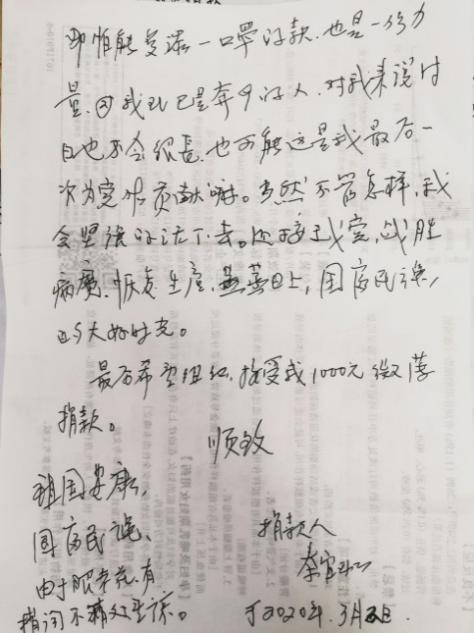 即怕能多添一口罩的款.也是一份力
量.因我已是奔9的人.对我来说时
日也不会很长.也可能这是我最后一
次为党作贡献嘛。当然不管怎样,我
会坚强的活下去。迎接了党,战胜
病魔.恢复生产.蒸蒸日上,国富民强,
的大好时光。
最后希望组织.接受我1000元微薄
捐款。
顺致
祖国安康,
国富民强、
由于眼老花.有
错词不精处至谅。
捐款人
李宜
于2020年.3月日.